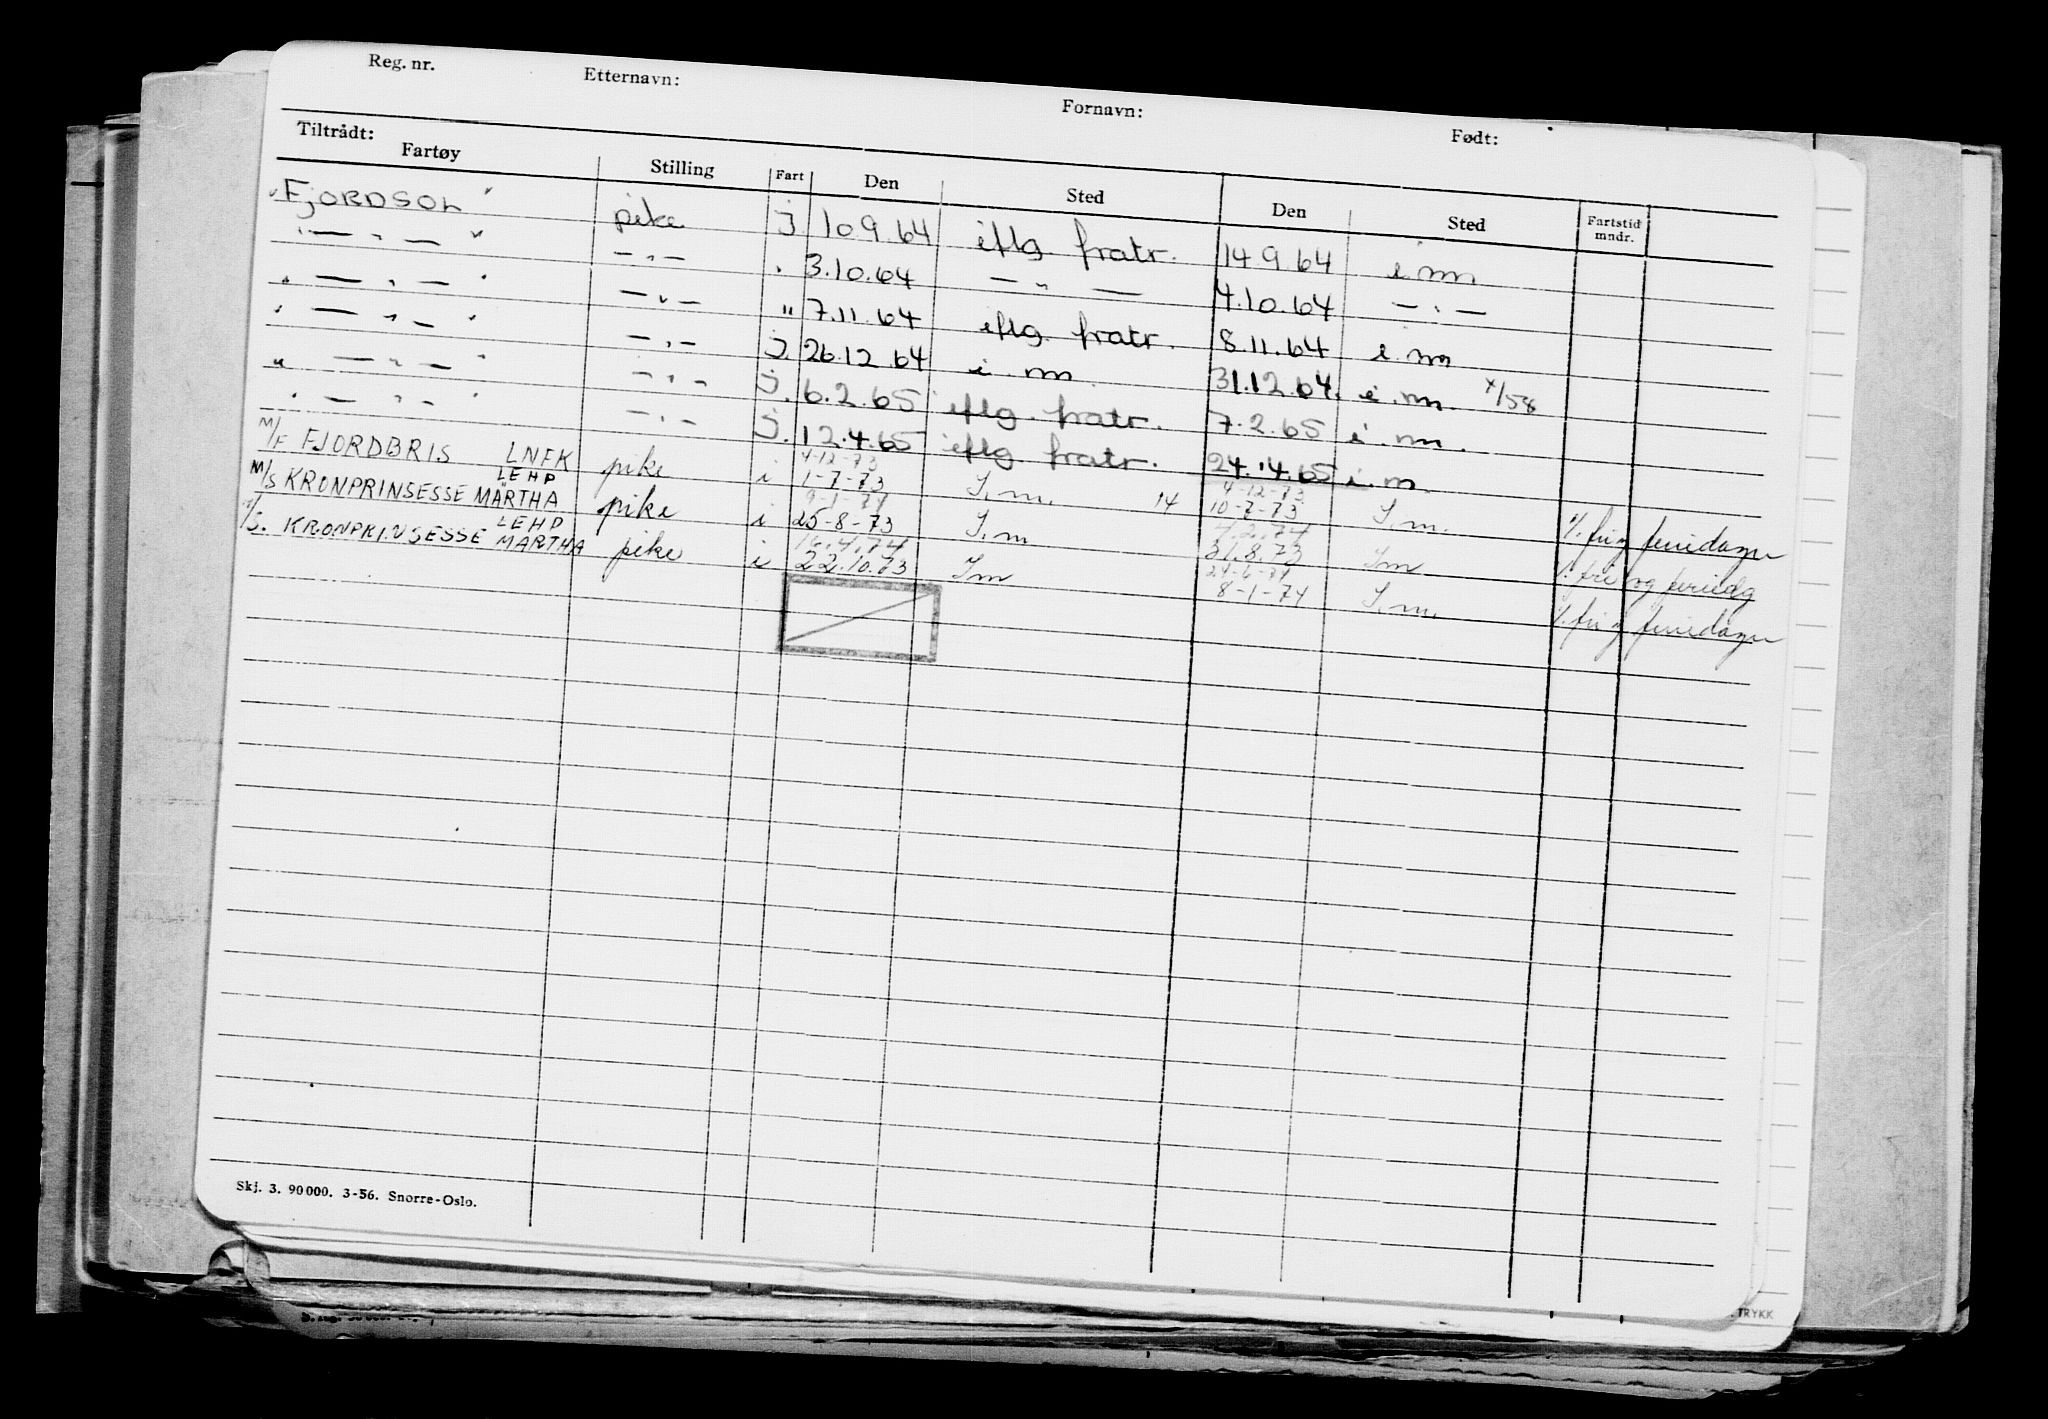 Reg. nr. Etternavn: Fornavn: Født:
Tiltrådt:
Fartøy Stilling Fart Den Sted Den Sted Fartstid mndr.
" FJORDSOL " pike j 10 9 64 iflg. fratr. 14 9 64 i. m
" — " — " — " — " 3.10.64 — " — 4.10.64 — " —
" — " — " — " — " 7.11.64 iflg. fratr. 8.11.64 i. m
" — " — " — " — j. 26.12.64 i. m. 31.12.64. i. m. x/58
" — " — " — " — j. 6.2.65 iflg. fratr. 7.2.65 i. m.
" — " — " — " — j. 12.4.65 iflg. fratr. 24.4.65 i. m.
4-12-73 4-12-73
M/F FJORDBRIS LNFK pike i 1-7-73 I. m. 14 10-7-73 I. m. %. fri og feriedager
LEHP 9-1-74 4.2.74
M/S KRONPRINSESSE MÄRTHA pike i 25-8-73 I. m 31.8.73 I m %. fri og feriedg
LEHP 16.4.74 24-6-74
M/S. KRONPRINSESSE MÄRTHA pike i 22.10.73 I m 8-1-74 I. m. %. fri og feriedager
Skj. 3. 90 000. 3-56. Snorre-Oslo.
TRYKK